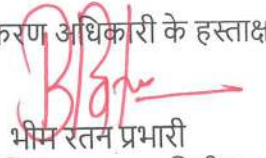 करण अधिकारी के हस्ताक्ष
भीम रतन प्रभारी